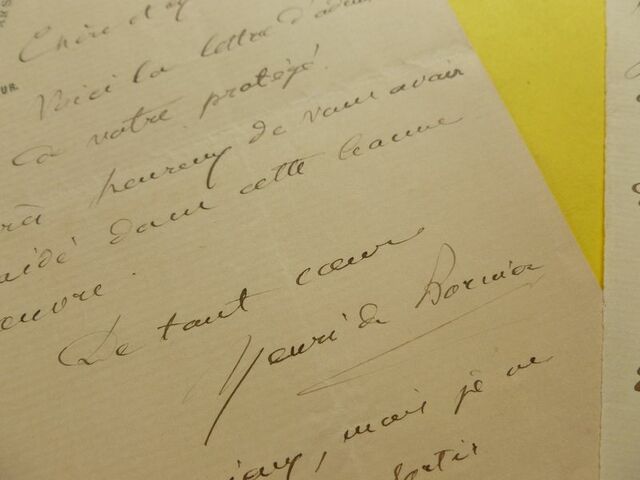 ARS
UR.
Chère et
Voici la lettre d'adm
à votre protégé.
heureux de vous avoir
aidé dans cette bonne
oeuvre.
De tout coeur
Henri de Bornier
, mais je ne
sortir